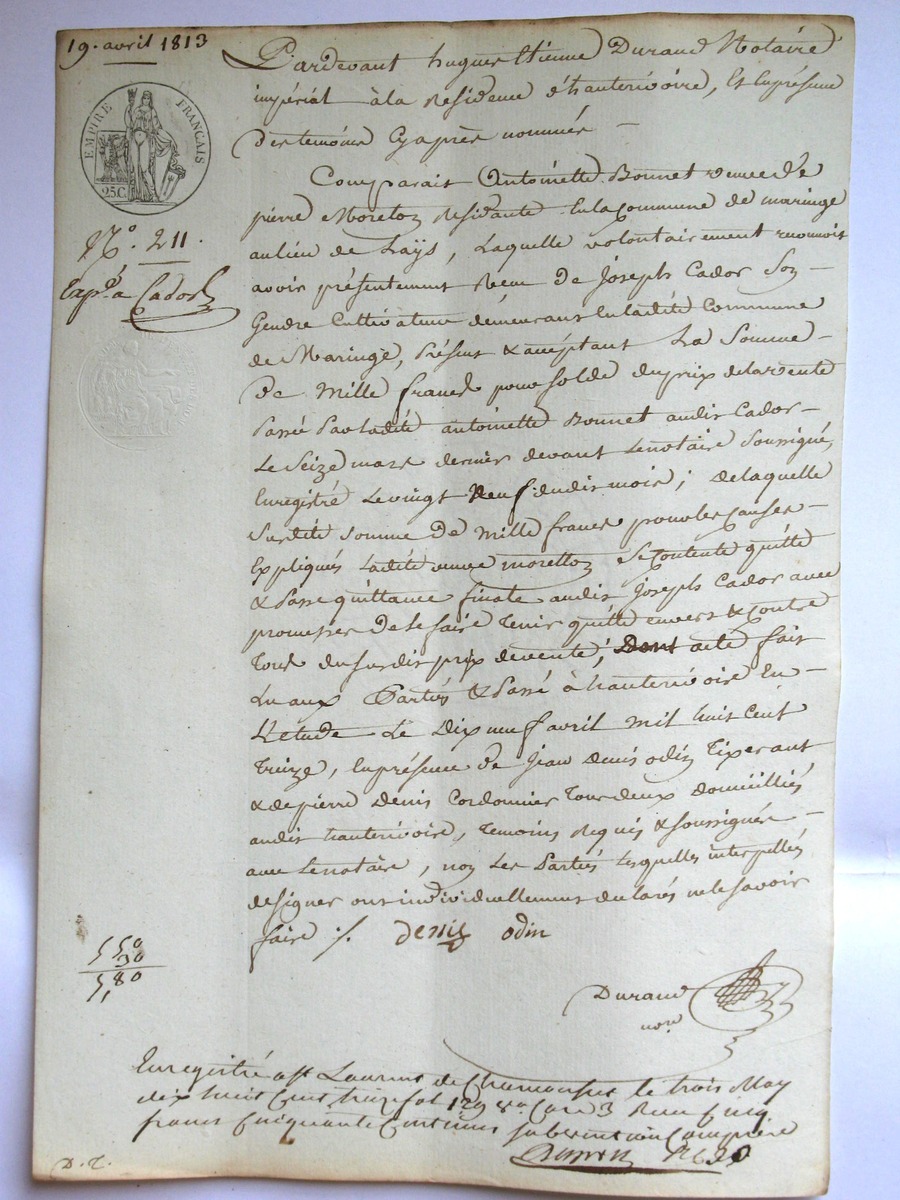 19. avril 1813
EMPIRE FRANÇAIS
25C.
N.° 211.
Exp.é a Cador
Pardevant hugues Etienne Durand Notaire
impérial à la Residance d'hauterivoire, Et en présence
des temoins Cy après nommés —
Comparait Antoinette Bonnet veuve de
pierre Moretton Residante En la Commune de maringe
au lieu de Lays, Laquelle volontairement reconnoit
avoir présentement Reçu de Joseph Cador Son —
Gendre Cultivateur demeurant En ladite Commune
de Maringe, Présent & acceptant La Somme —
de Mille francs pour solde du prix de la vente
Passée Par ladite antoinette Bonnet audit Cador —
Le Seize mars dernier devant Le notaire Soussigné,
Enregistré Le vingt neuf dudit mois ; de laquelle
Susdite Somme de Mille francs pour les Causes —
Expliqués Ladite veuve moretton Se Contente quitte
& Passe quittance finale audit Joseph Cador avec
promesse de le faire Tenir quitte envers & Contre
Tous du susdit prix de vente ; Dont acte fait
Lu aux Parties & Passé à hauterivoire En —
L'etude Le Dix neuf avril mil huit Cent
Treize, En présence de Jean Denis odin Tixerant
& de pierre Denis Cordonnier Tous deux domicilliés
audit hauterivoire, Temoins Requis & Soussignés —
avec Le notaire, non Les Parties Lesquelles interpellés
de signer ont individuellement declarés ne le savoir
faire ./. denis odin
5 50
30
5,80
Durand
not.re
Enregistré a St Laurent de Chamousset le trois May
dix huit Cent treize fol 129 v.o Case 3 Reçu Cinq
francs Cinquante Centimes subvention Comprise
D. T.